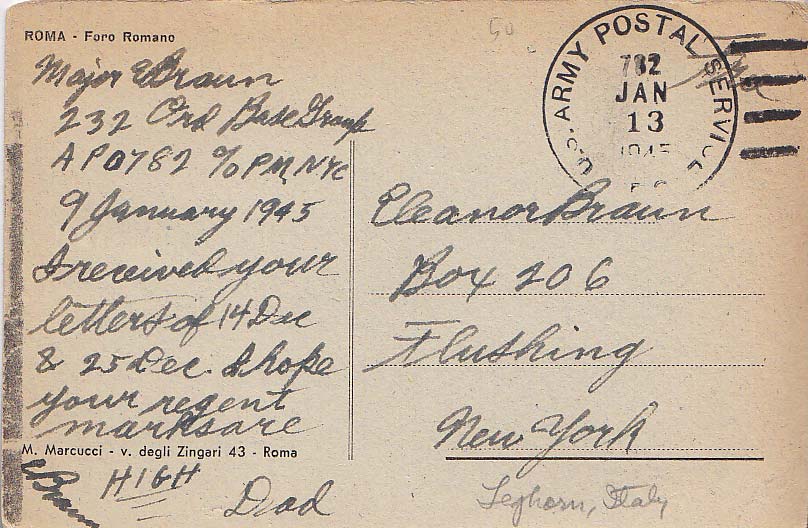 ROMA - Foro Romano
Major E Braun
232 Ord Base Group
APO 782 c/o PM, NYC
9 January 1945
I received your
letters of 14 Dec
& 25 Dec. I hope
your regent
marks are
M. Marcucci - v. degli Zingari 43 - Roma
HIGH
E Braun
Dad
50
U.S. ARMY POSTAL SERVICE
782
JAN
13
1945
Eleanor Braun
Box 206
Flushing
New York
Leghorn, Italy